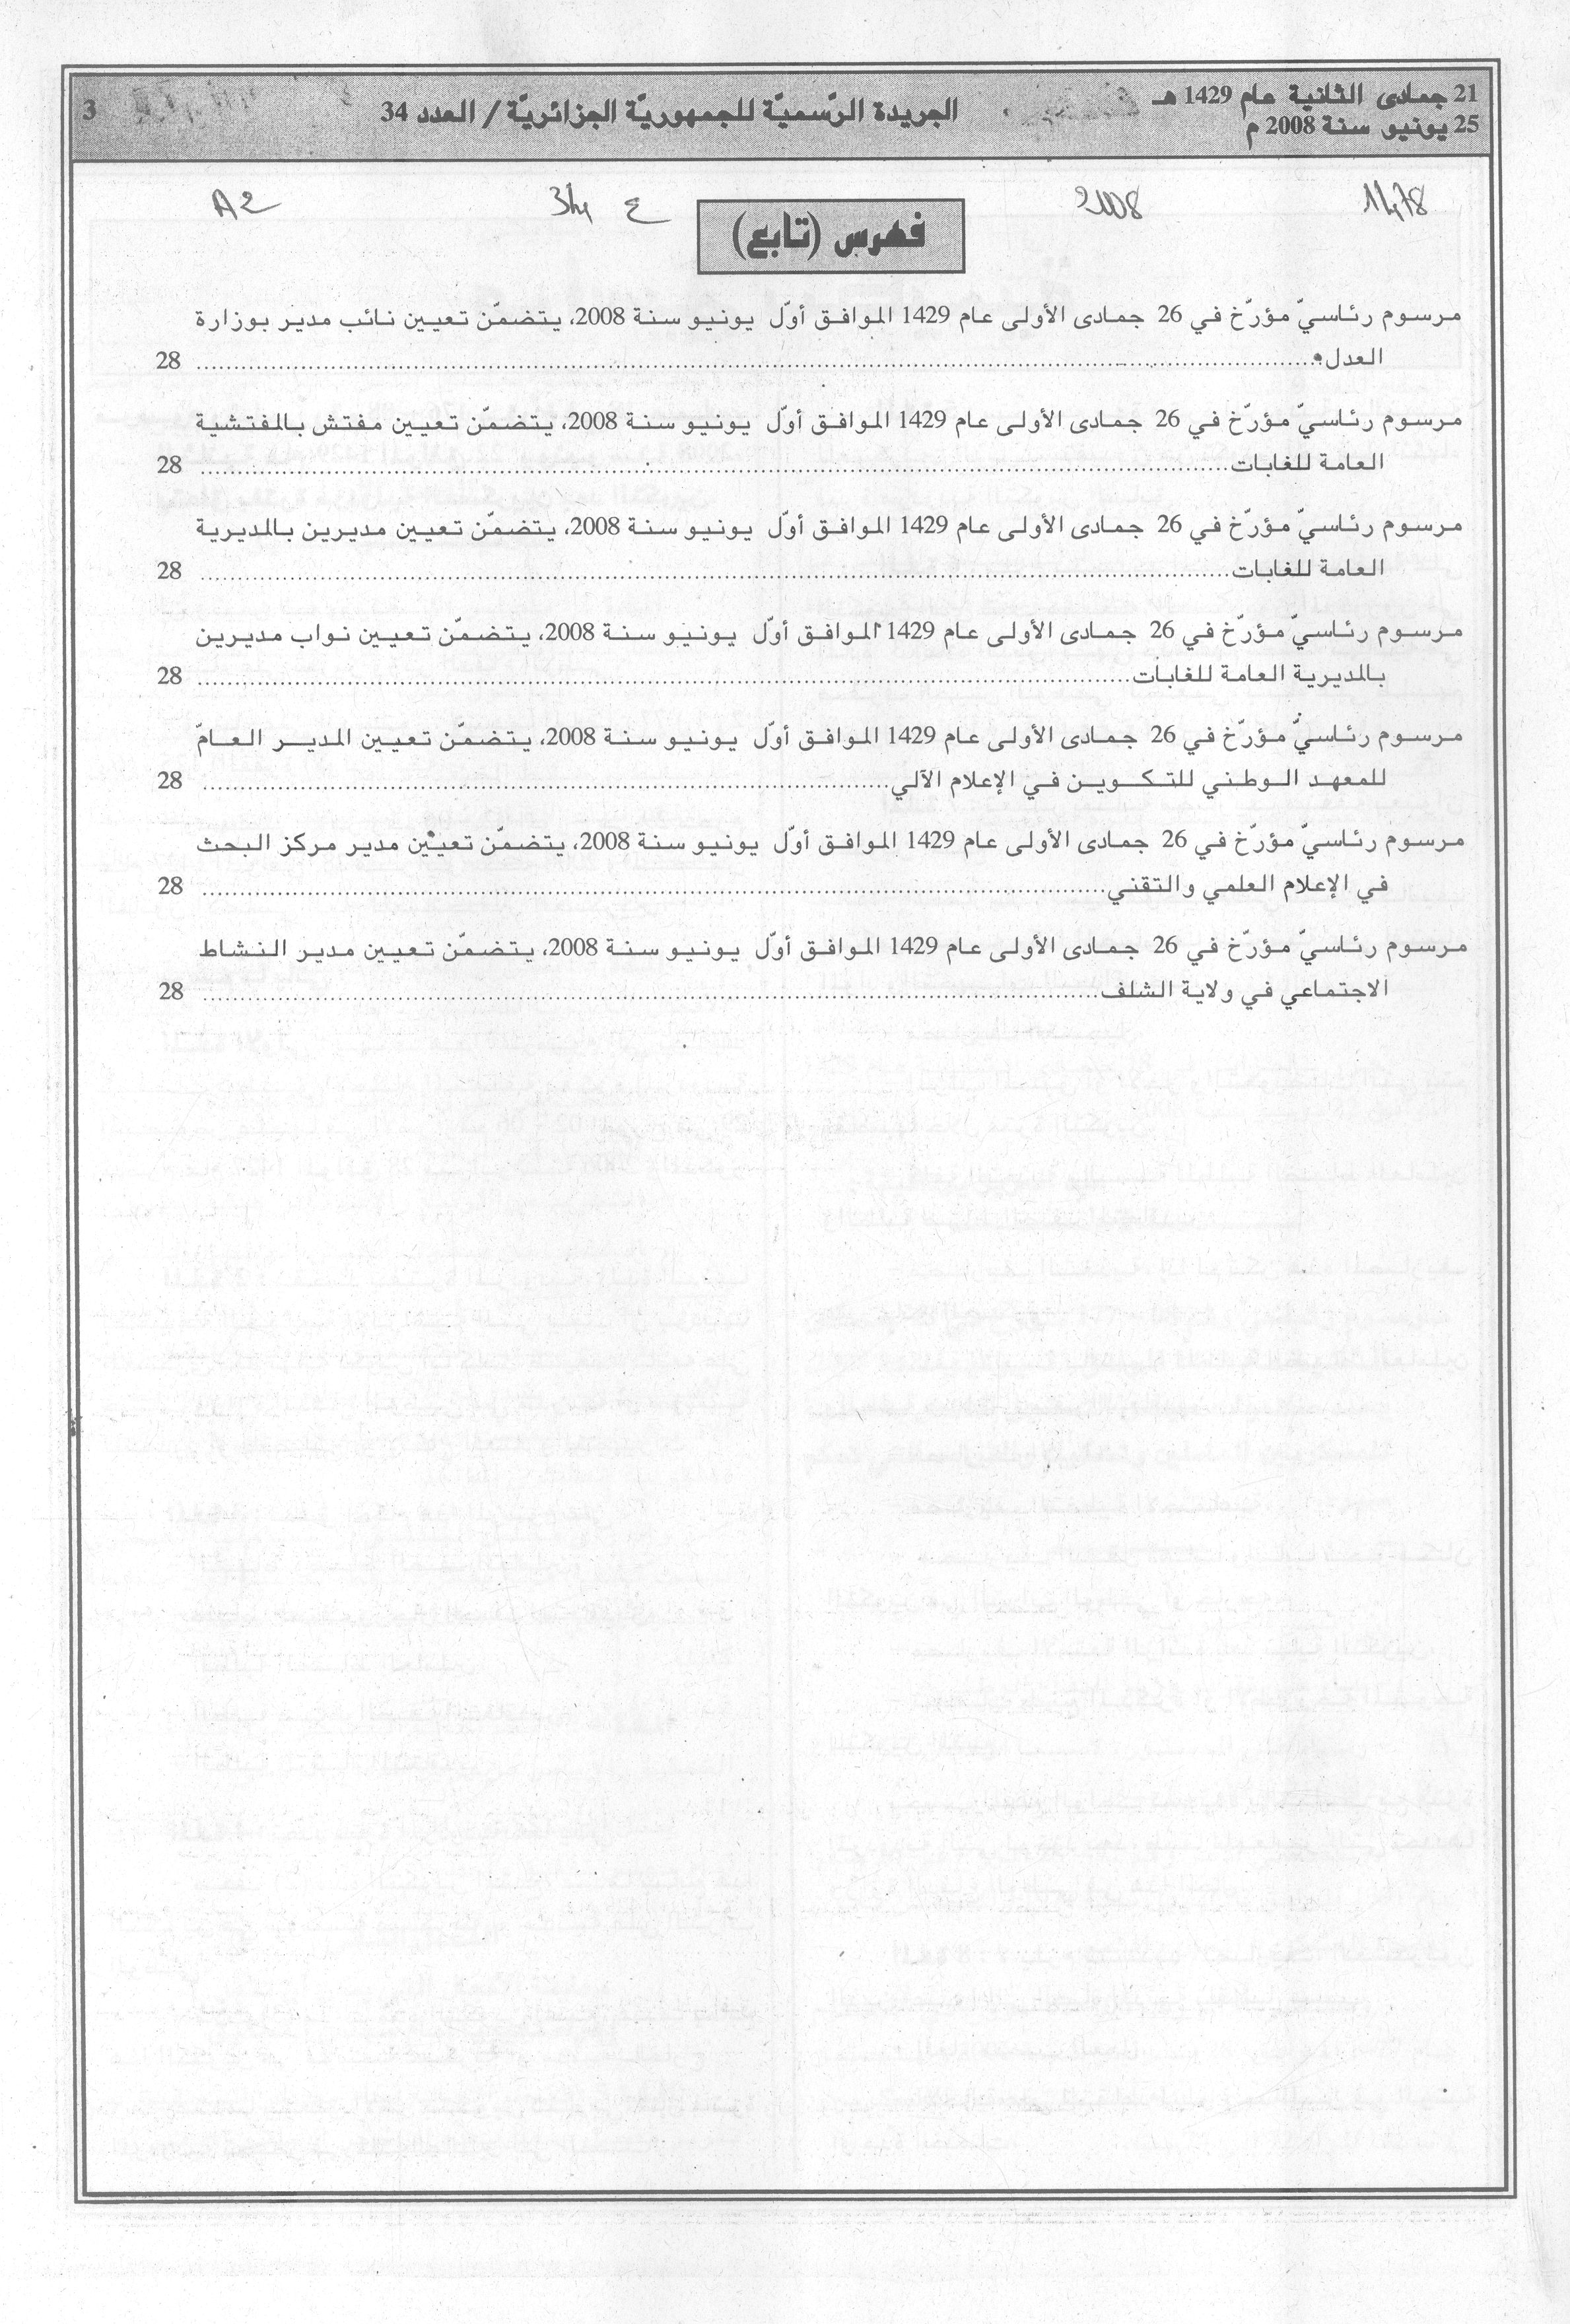 21 جمادى الثانية عام 1429 هـ
25 يونيو سنة 2008 م
الجريدة الرّسميّة للجمهوريّة الجزائريّة / العدد 34
3
1478 2008 ع 34 A2
فهرس (تابع)
مرسوم رئاسيّ مؤرّخ في 26 جمادى الأولى عام 1429 الموافق أوّل يونيو سنة 2008، يتضمّن تعيين نائب مدير بوزارة
العدل........................................ 28
مرسوم رئاسيّ مؤرّخ في 26 جمادى الأولى عام 1429 الموافق أوّل يونيو سنة 2008، يتضمّن تعيين مفتش بالمفتشية
العامة للغابات........................................ 28
مرسوم رئاسيّ مؤرّخ في 26 جمادى الأولى عام 1429 الموافق أوّل يونيو سنة 2008، يتضمّن تعيين مديرين بالمديرية
العامة للغابات........................................ 28
مرسوم رئاسيّ مؤرّخ في 26 جمادى الأولى عام 1429 الموافق أوّل يونيو سنة 2008، يتضمّن تعيين نواب مديرين
بالمديرية العامة للغابات........................................ 28
مرسوم رئاسيّ مؤرّخ في 26 جمادى الأولى عام 1429 الموافق أوّل يونيو سنة 2008، يتضمّن تعيين المدير العامّ
للمعهد الوطني للتكوين في الإعلام الآلي........................................ 28
مرسوم رئاسيّ مؤرّخ في 26 جمادى الأولى عام 1429 الموافق أوّل يونيو سنة 2008، يتضمّن تعيين مدير مركز البحث
في الإعلام العلمي والتقني........................................ 28
مرسوم رئاسيّ مؤرّخ في 26 جمادى الأولى عام 1429 الموافق أوّل يونيو سنة 2008، يتضمّن تعيين مدير النشاط
الاجتماعي في ولاية الشلف........................................ 28